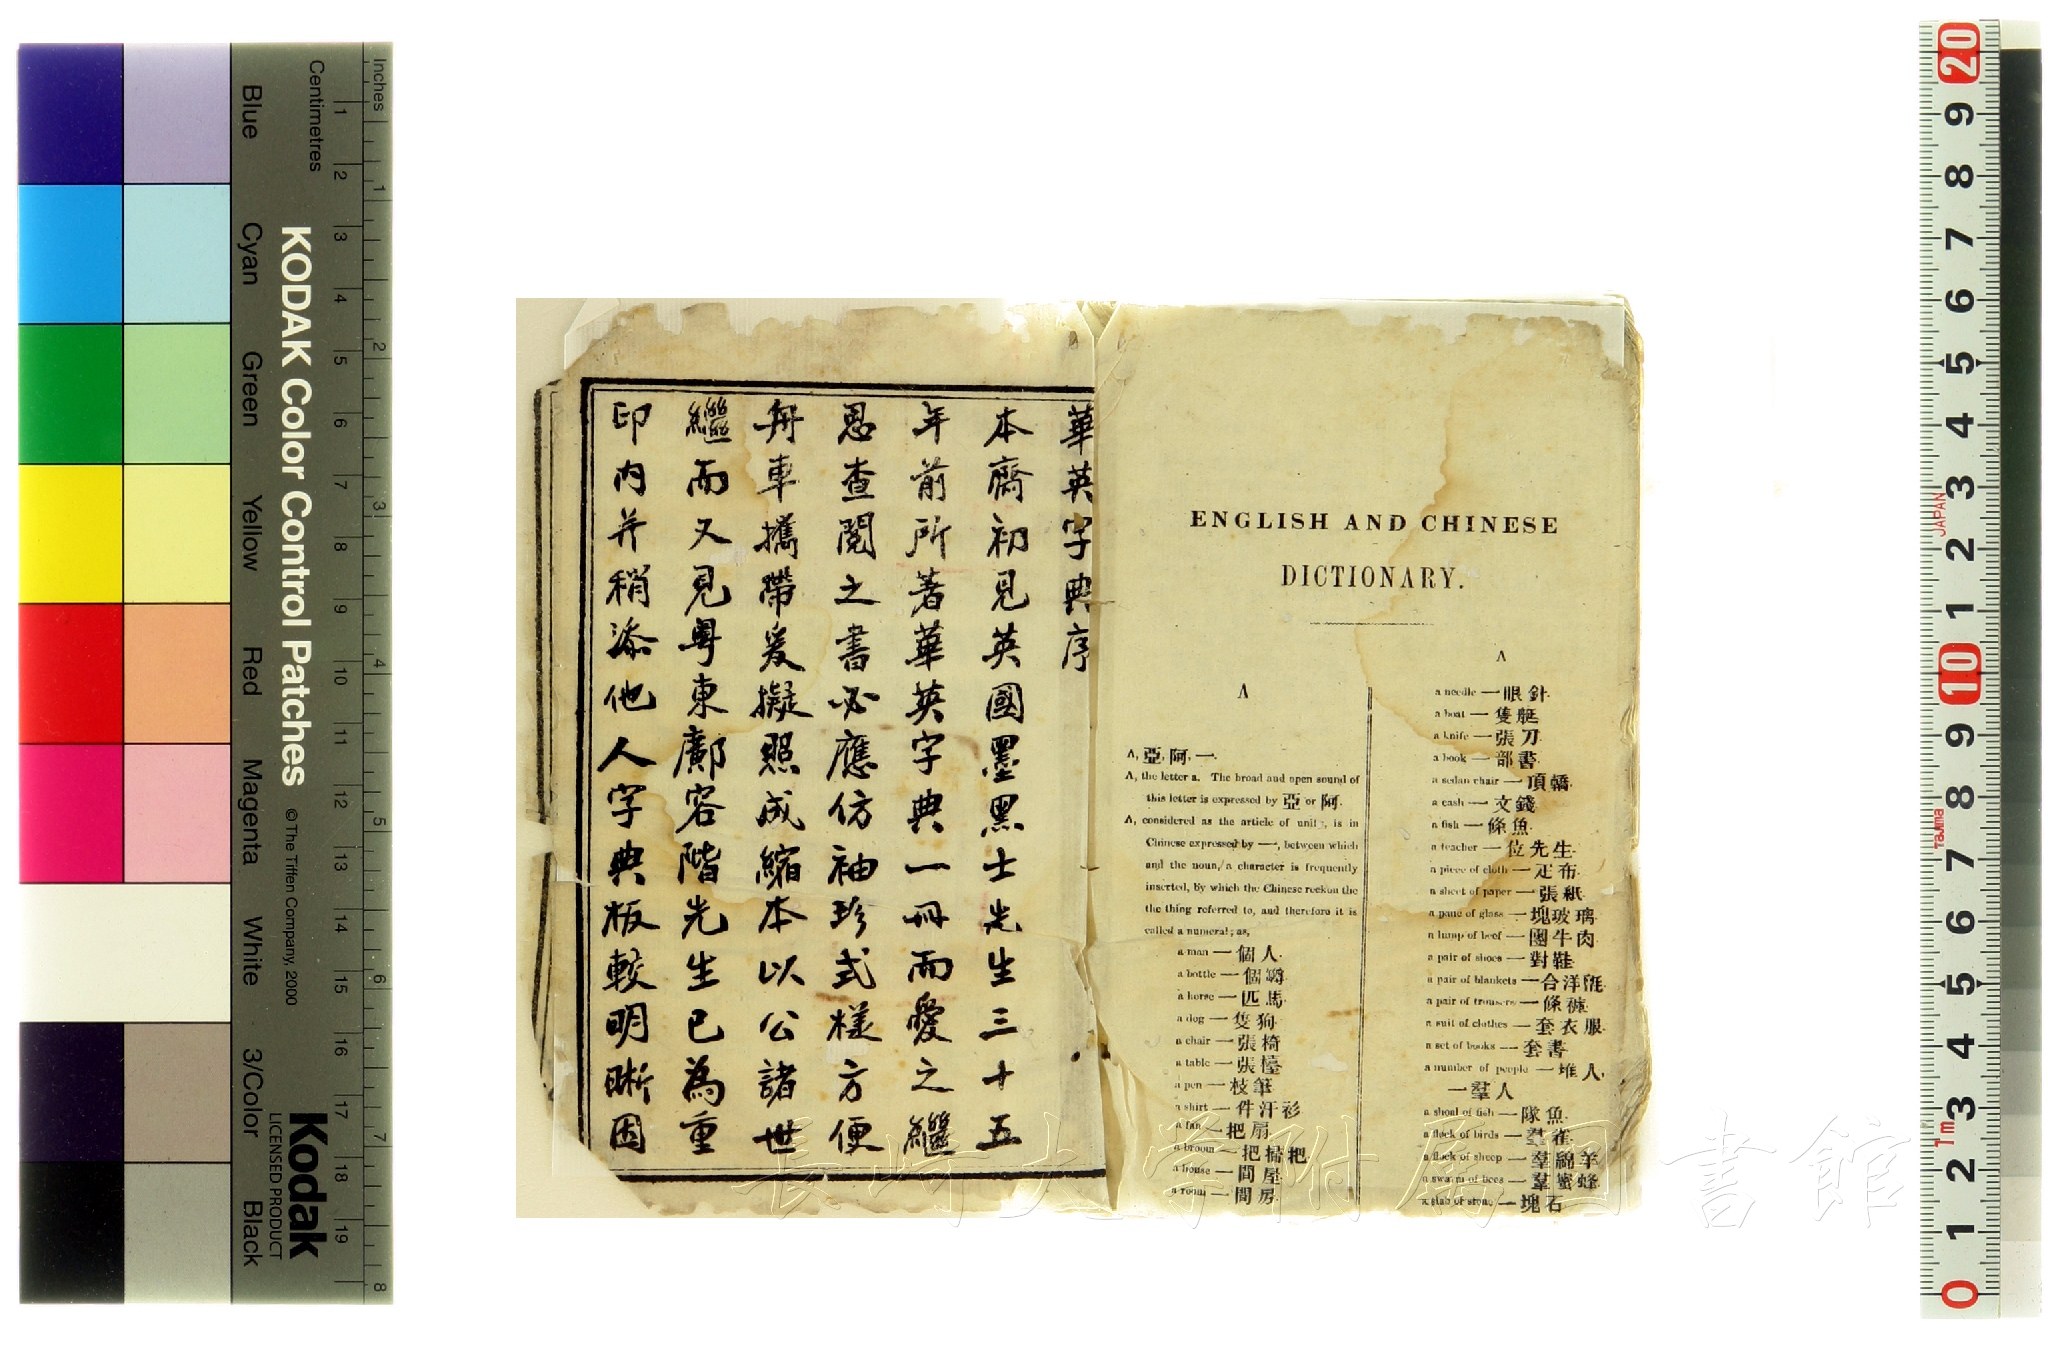 Inches
Centimetres
1 2 3 4 5 6 7 8 9 10 11 12 13 14 15 16 17 18 19
1 2 3 4 5 6 7 8
KODAK Color Control Patches
© The Tiffen Company, 2000
Kodak
LICENSED PRODUCT
Blue
Cyan
Green
Yellow
Red
Magenta
White
3/Color
Black
華英字典序
本齋初見英國墨黑士先生三十五
年前所著華英字典一冊而愛之繼
思查閱之書必應仿袖珍式樣方便
舟車攜帶爰擬照成縮本以公諸世
繼而又見粵東鄺容階先生已為重
印內并稍添他人字典板較明晰因
ENGLISH AND CHINESE
DICTIONARY.
A
A, 亞, 阿, 一.
A, the letter a. The broad and open sound of
this letter is expressed by 亞 or 阿.
A, considered as the article of unity, is in
Chinese expressed by 一, between which
and the noun, a character is frequently
inserted, by which the Chinese reckon the
the thing referred to, and therefore it is
called a numeral; as,
a man 一個人.
a bottle 一個罇.
a horse 一匹馬.
a dog 一隻狗.
a chair 一張椅.
a table 一張檯.
a pen 一枝筆.
a shirt 一件汗衫.
a fan 一把扇.
a broom 一把掃把.
a house 一間屋.
a room 一間房.
A
a needle 一眼針.
a boat 一隻艇.
a knife 一張刀.
a book 一部書.
a sedan chair 一頂轎.
a cash 一文錢.
a fish 一條魚.
a teacher 一位先生.
a piece of cloth 一疋布.
a sheet of paper 一張紙.
a pane of glass 一塊玻璃.
a lump of beef 一團牛肉.
a pair of shoes 一對鞋.
a pair of blankets 一合洋氈.
a pair of trousers 一條褲.
a suit of clothes 一套衣服.
a set of books 一套書.
a number of people 一堆人,
一羣人
a shoal of fish 一隊魚.
a flock of birds 一羣雀.
a flock of sheep 一羣綿羊.
a swarm of bees 一羣蜜蜂.
a slab of stone 一塊石.
長崎大学附属図書館
20 9 8 7 6 5 4 3 2 1 10 9 8 7 6 5 4 3 2 1 0
JAPAN
Tajima
1m